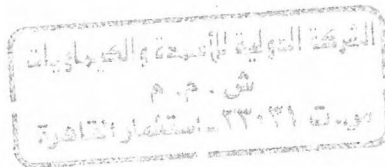 الشركة الدولية للأسمدة والكيماويات
ش . م . م
استثمار القاهرة